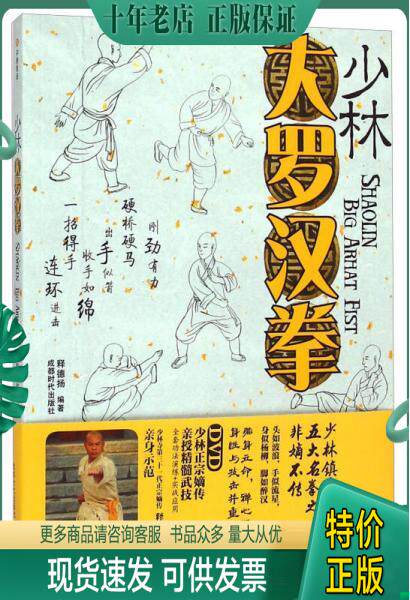 十年老店 正版保证
少林
大罗汉拳
SHAOLIN
BIG ARHAT FIST
刚劲有力
硬桥硬马
出手似箭
收手如绵
一招得手
连环进击
少林
大罗汉拳
SHAOLIN BIG ARHAT
释德扬 编著
成都时代出版社
少林镇
五大名拳之
非嫡不传
头如波浪，手似流星，
身似杨柳，脚如醉汉
DVD
少林正宗嫡传
亲授精髓武技
全套功法演练+实战应用
少林寺第三十一代正宗嫡传 释
亲身示范
更多商品请咨询客服 书品众多 量大从优
现货速发 可供发票
特价
正版